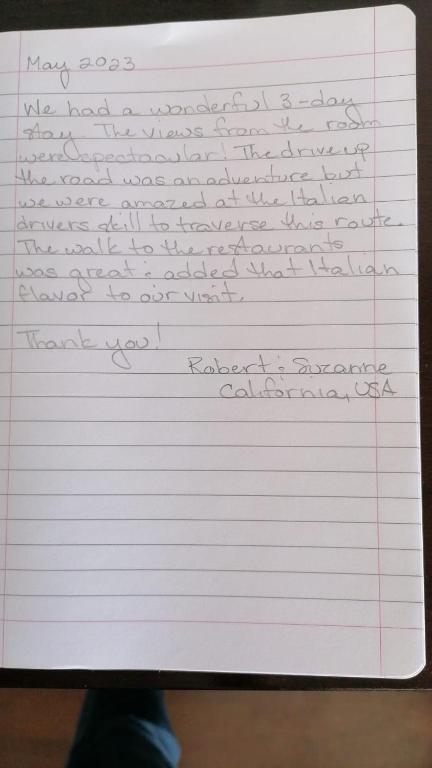 May 2023
We had a wonderful 3-day
stay. The views from the room
were spectacular! The drive up
the road was an adventure but
we were amazed at the Italian
drivers skill to traverse this route.
The walk to the restaurants
was great & added that Italian
flavor to our visit.
Thank you!
Robert & Suzanne
California, USA